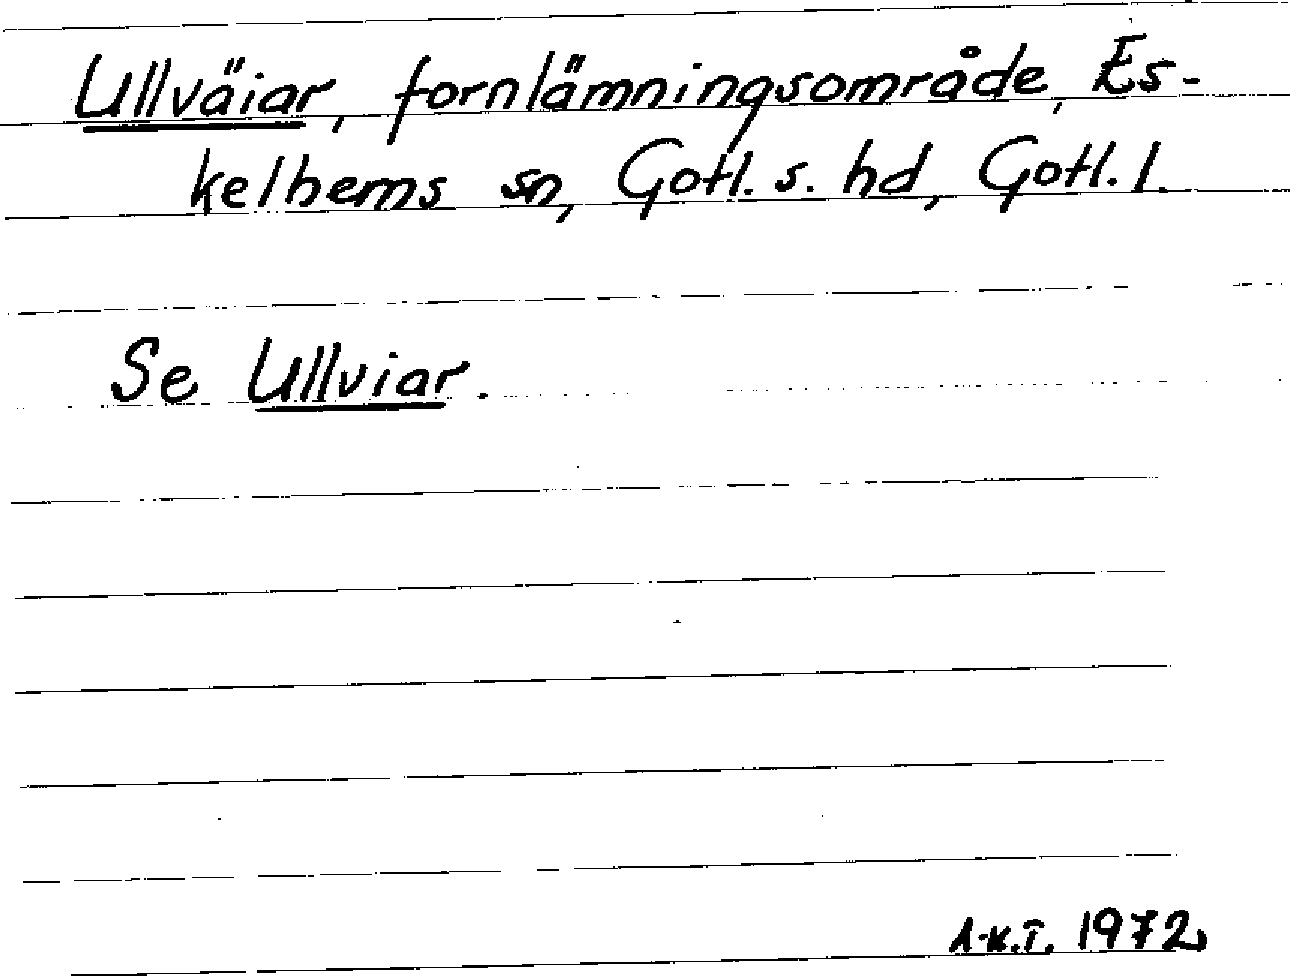 Ullväiar, fornlämningsområde, Es-
kelhems sn, Gotl. s. hd, Gotl. l.
Se Ullviar.
A-K.T. 1972